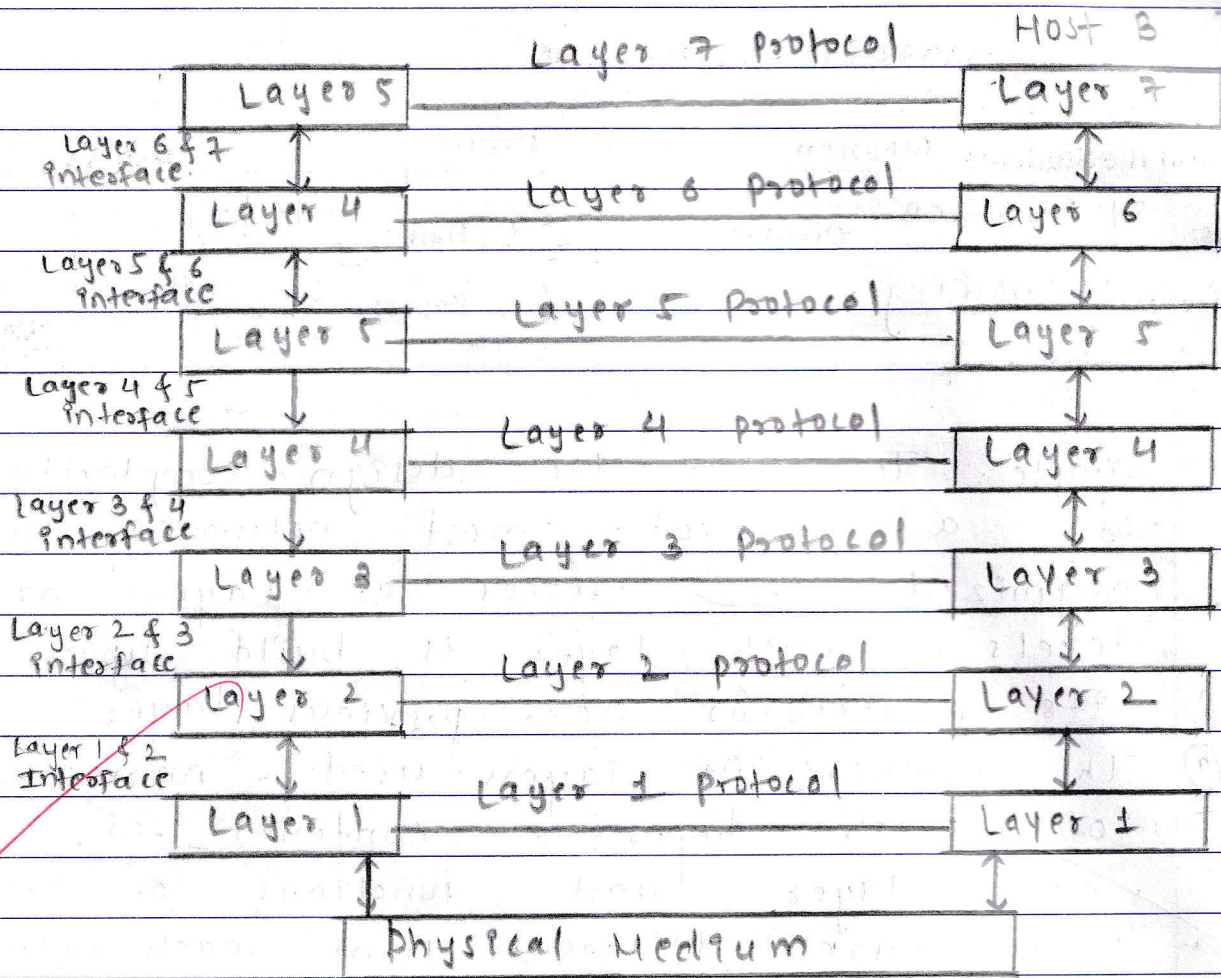 Host B
Layer 7 Protocol
Layer 5
Layer 7
Layer 6 & 7
interface.
Layer 6 Protocol
Layer 4
Layer 6
Layer 5 & 6
interface
Layer 5 Protocol
Layer 5
Layer 5
Layer 4 & 5
interface
Layer 4 Protocol
Layer 4
Layer 4
Layer 3 & 4
interface
Layer 3 Protocol
Layer 3
Layer 3
Layer 2 & 3
interface
Layer 2 protocol
Layer 2
Layer 2
Layer 1 & 2
Interface
Layer 1 Protocol
Layer 1
Layer 1
Physical Medium